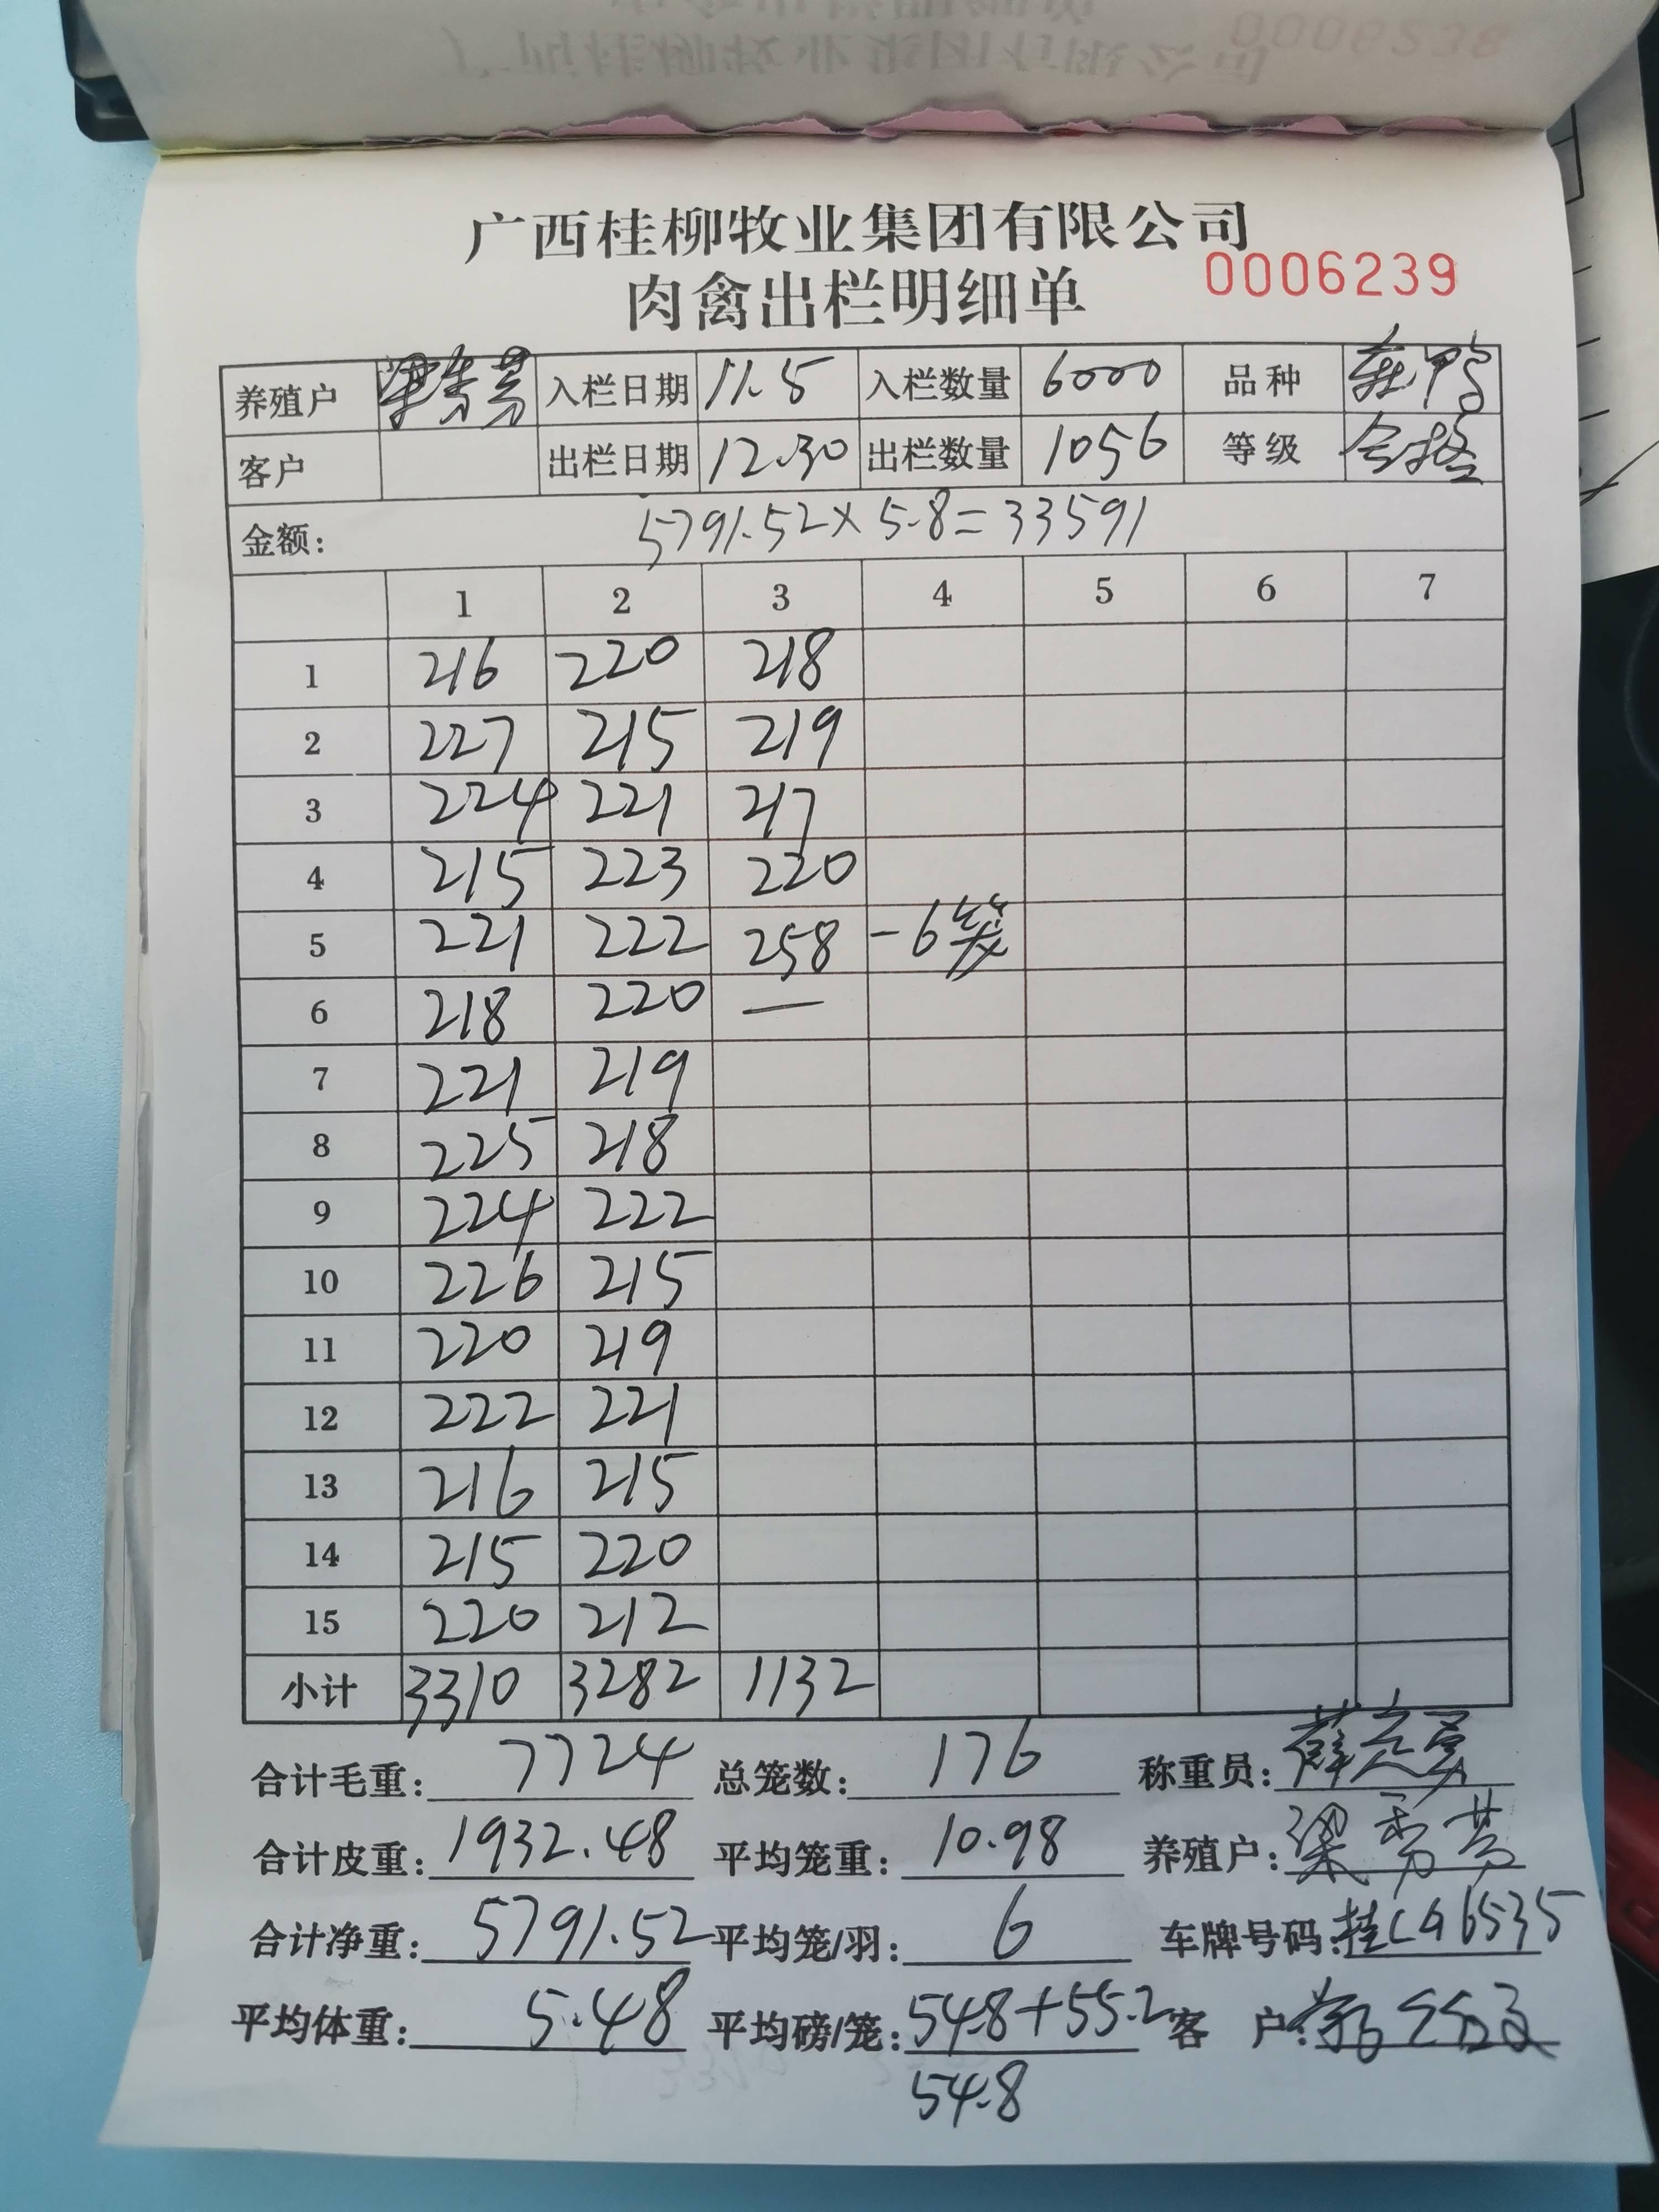 广西桂柳牧业集团有限公司
肉禽出栏明细单 0006239
养殖户 梁秀芳 入栏日期 11.5 入栏数量 6000 品种
客户 出栏日期 12.30 出栏数量 1056 等级 合格
金额: 5791.52×5.8=33591
1 2 3 4 5 6 7
1 216 220 218
2 227 215 219
3 224 221 217
4 215 223 220
5 221 222 258 -6笼
6 218 220 —
7 221 219
8 225 218
9 224 222
10 226 215
11 220 219
12 222 221
13 216 215
14 215 220
15 220 212
小计 3310 3282 1132
合计毛重: 7724 总笼数: 176 称重员:
合计皮重: 1932.48 平均笼重: 10.98 养殖户: 梁秀芳
合计净重: 5791.52 平均笼/羽: 6 车牌号码: 桂CG6535
平均体重: 5.48 平均磅/笼: 54.8+55.2 客户:
54.8